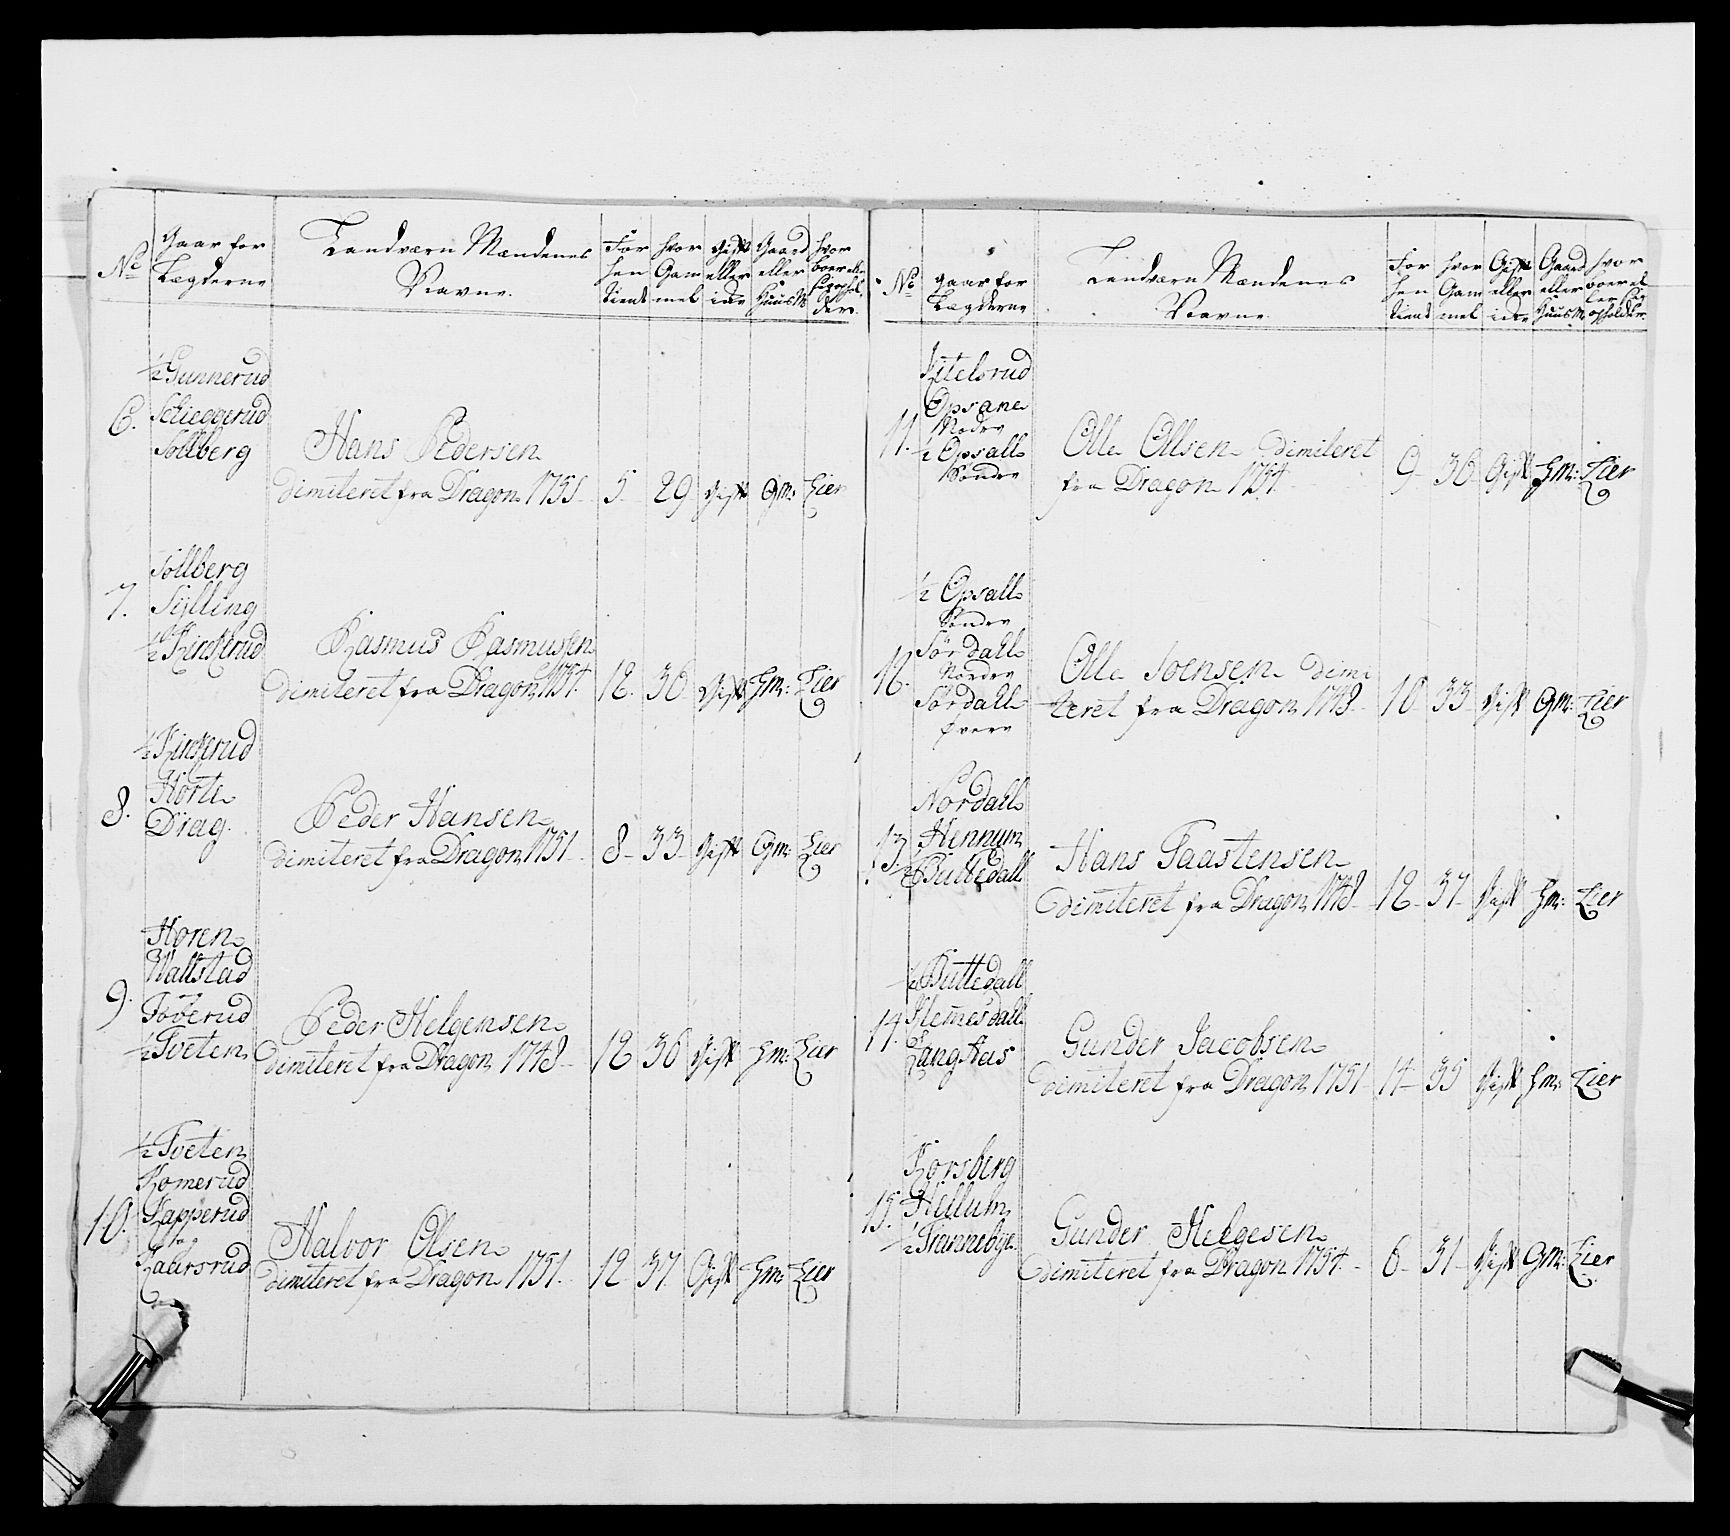 No
Gaar for
Lægderne
Landværn Mændenes
Navne
For
hen
tient
hvor
Gam
mel
Gift
eller
icke
Gaard
eller
Huus M
hvor
boer
6.
½ Gunnerud
Schieggerud
Sollberg
Hans Pedersen
dimiteret fra Dragon 1755 5 29 Gift Gm: Lier
7.
Sollberg
Sylling
½ Kinkerud
Rasmus Rasmussen
dimiteret fra Dragon 1754 12 36 Gift Hm: Lier
8.
½ Kinkerud
Horte
Drag
Peder Hansen
dimiteret fra Dragon 1751 8 33 Gift Gm: Lier
9.
Horen
Wallstad
Toverud
½ Tveten
Peder Helgemsen
dimiteret fra Dragon 1748 12 36 Gift Hm: Lier
10.
½ Tveten
Komerud
Kapperud
og
Kaarsrud
Halvor Olsen
dimiteret fra Dragon 1751 12 37 Gift Hm: Lier
No
gaar for
Lægderne
Landværn Mændenes
Navne
For
hen
tient
hvor
Gam
mel
Gift
eller
icke
Gaard
eller
Huus M
hvor
boer el
ler sig
opholder
11.
Kitelsrud
Opsane
Nodre
½ Opsall
Søndre
Olle Ollsen dimiteret
fra Dragon 1754 9 36 Gift Hm: Lier
12.
½ Opsall
Søndre
Sørdall
Nordre
Sørdall
øvere
Olle Joensen dimi
teret fra Dragon 1748 10 33 Gift Gm: Lier
13.
Nordall
Hennum
½ Buttedall
Hans Taastensen
dimiteret fra Dragon 1748 12 37 Gift Hm: Lier
14.
½ Buttedall
Hemesdall
Langaas
Gunder Jacobsen
dimiteret fra Dragon 1751 14 35 Gift Hm: Lier
15.
Korsberg
Hellum
½ Trannebye
Gunder Helgesen
dimiteret fra Dragon 1754 6 31 Gift Gm: Lier